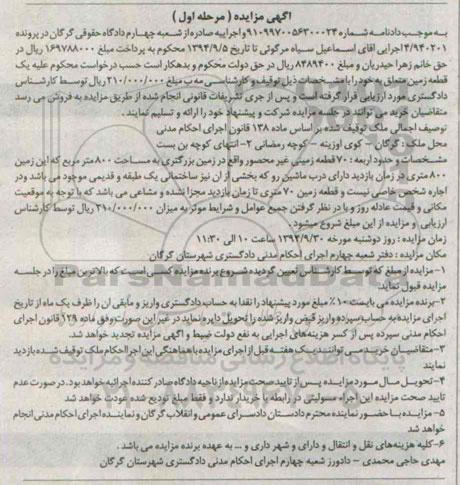 آگهی مزایده ( مرحله اول )
به موجب دادنامه شماره ۹۱۰۹۹۷۰۰۵۶۳۰۰۰۲۴ و اجراییه صادره از شعبه چهارم دادگاه حقوقی گرگان در پرونده
۴/۹۴۰۲۰۱ اجرایی اقای اسماعیل سیاه مرگوئی تا تاریخ ۱۳۹۴/۹/۵ محکوم به پرداخت مبلغ ۱۶۹۷۸۸۰۰۰ ریال در
حق خانم زهرا حیدریان و مبلغ ۸۴۸۹۴۰۰ ریال در حق دولت محکوم و بدهکار است حسب درخواست محکوم علیه یک
قطعه زمین متعلق به خود را با مشخصات ذیل توقیف و کارشناسی به مبلغ ۲۱۰/۰۰۰/۰۰۰ ریال توسط کارشناس
دادگستری مورد ارزیابی قرار گرفته است و پس از جری تشریفات قانونی انجام شده از طریق مزایده به فروش می رسد
متقاضیان خرید می توانند در جلسه مزایده شرکت و پیشنهاد خود را ارائه و تسلیم نمایند .
توصیف اجمالی ملک توقیف شده بر اساس ماده ۱۳۸ قانون اجرای احکام مدنی
محل ملک : گرگان – کوی اوزینه – کوچه رمضانی ۲- انتهای کوچه بن بست
مشخصات و حدود اربعه : ۷۰ قطعه زمینی غیر محصور واقع در زمین بزرگتری به مساحت ۸۰۰ متر مربع که این زمین
۸۰۰ متری در زمان بازدید دارای درب ماشین رو که بخشی از ان نیز ساختمانی یک طبقه و قدیمی موجود می باشد و در
اجاره شخص خاصی نیست و قطعه زمین ۷۰ متری تا زمان بازدید مجزا نشده و مشاعی می باشد که با توجه به موقعیت
مکانی و قیمت عادله روز و با در نظر گرفتن جمیع عوامل و شرایط موثر به میزان ۲۱۰/۰۰۰/۰۰۰ ریال توسط کارشناس
ارزیابی و مزایده از این مبلغ شروع میشود .
زمان مزایده : روز دوشنبه مورخه ۱۳۹۴/۹/۳۰ ساعت ۱۰ الی ۱۱:۳۰
مکان مزایده : دفتر شعبه چهارم اجرای احکام مدنی دادگستری شهرستان گرگان
۱- مزایده از مبلغ که توسط کارشناس تعیین گردیده شروع برنده مزایده کسی است که بالاترین مبلغ را در جلسه
مزایده قبول نماید.
۲- برنده مزایده می بایست ۱۰٪ مبلغ مورد پیشنهاد را نقدا به حساب دادگستری واریز و مابقی ان را ظرف یک ماه از تاریخ
اجرای مزایده به حساب سپرده واریز قبض واریز شده را تحویل دایره نماید در غیر این صورت وفق ماده ۱۲۹ قانون اجرای
احکام مدنی سپرده پس از کسر هزینه های اجرایی به نفع دولت ضبط و اگهی مزایده تجدید خواهد شد.
۳- متقاضیان خرید می توانند یک هفته قبل از اجرای مزایده با هماهنگی این اجرا احکام ملک توقیف شده بازدید
نمایند
۴- تحویل مال مورد مزایده پس از تایید صحت مزایده از ناحیه دادگاه صادر کننده اجرائیه خواهد بود . در صورت عدم
تایید صحت مزایده این اجراء مسولیتی در رابطه با خریدار ندارد و فقط مبلغ تودیع شده عودت خواهد شد
۵- مزایده با حضور نماینده محترم دادستان دادسرای عمومی و انقلاب گرگان و نماینده اجرای احکام مدنی انجام
خواهد شد
۶- کلیه هزینه های نقل و انتقال و دارای و شهر داری و ... به عهده برنده مزایده می باشد .
مهدی حاجی محمدی – دادورز شعبه چهارم اجرای احکام مدنی دادگستری شهرستان گرگان